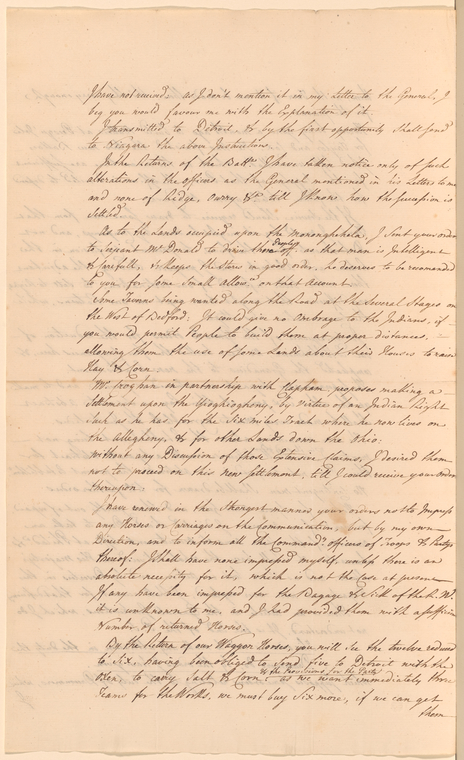 I have not received: as I don't mention it in my Letter to the General, I
beg you would favour me with the Explanation of it.
I transmitted to Detroit, & by the first opportunity shall send
to Niagara the above Instructions.
In the Returns of the Battns I have taken notice only of such
alterations in the officers as the General mentioned in his Letters to me
and none of Hedge, Ourry &ca till I know how the Succession is
settled.
As to the Lands occupied upon the Monongehela, I sent your orders
to Serjeant McDonald to drive those People off, as that man is Intelligent
& Carefull, & keeps the Stores in good order, he deserves to be recomanded
to you for some Small allowce on that Account.
Some Taverns being wanted along the Road at the Several Stages on
the West of Bedford: It could give no Ombrage to the Indians, if
you would permit People to build them at proper distances,
allowing them the use of some Lands about their Houses to raise
Hay & Corn.
Mr Croghan in partnership with Clapham, proposes making a
Settlement upon the Yioghiogheny, by Virtue of an Indian Right
such as he has for the Six miles Track where he now lives on
the Allegheny, & for other Lands down the Ohio:
without any Discussion of those Extensive claims, I desired them
not to proceed on this new Settlement, till I could receive your orders
thereupon.
I have renewed in the Strongest manner your orders not to Impress
any Horses or Carriages on the Communication, but by my own
Direction, and to inform all the Commandg officers of Troops & Partys
thereof: I shall have none impressed myself, unless there is an
absolute necessity for it, which is not the Case at present
If any have been impressed for the Bagage & Sick of the R. W.
it is unknown to me, and I had provided them with a sufficient
Number of returned Horses.
By the Return of our Waggon Horses, you will see the twelve reduced
to Six, having been obliged to Send five to Detroit with the
Men, to carry Salt & Corn: & the Provisions for the Party as we want immediately three
Teams for the Works, we must buy Six more, if we can get
them